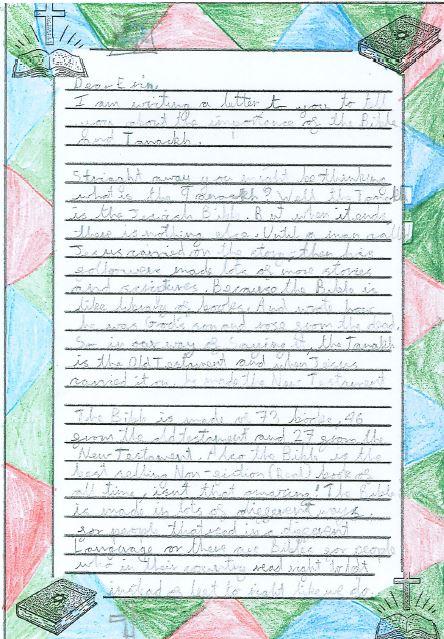 Dear Erin,
I am writing a letter to you to tell
you about the importance of the Bible
and Tanakh.
Straight away you might be thinking
what is the Tanakh? Well the Tanakh
is the Jewish Bible. But when it ends
there is nothing else. Until a man called
Jesus carried on the story, then his
followers made lots of more stories
and scriptures. Because the Bible is
like library of books. And wrote how
he was God's son and rose from the dead.
So in our way of saying it, the Tanakh
is the Old Testament and when Jesus
carried it on, he made the New Testament
The Bible is made of 73 books, 46
from the old testament and 27 from the
New Testament. Also the Bible is the
best selling Non-fiction (Real) book of
all time, isn't that amazing! The Bible
is made in lots of different ways
for people that read in a different
Language or there are Bibles for people
who in their country read right to left
instead of left to right like we do